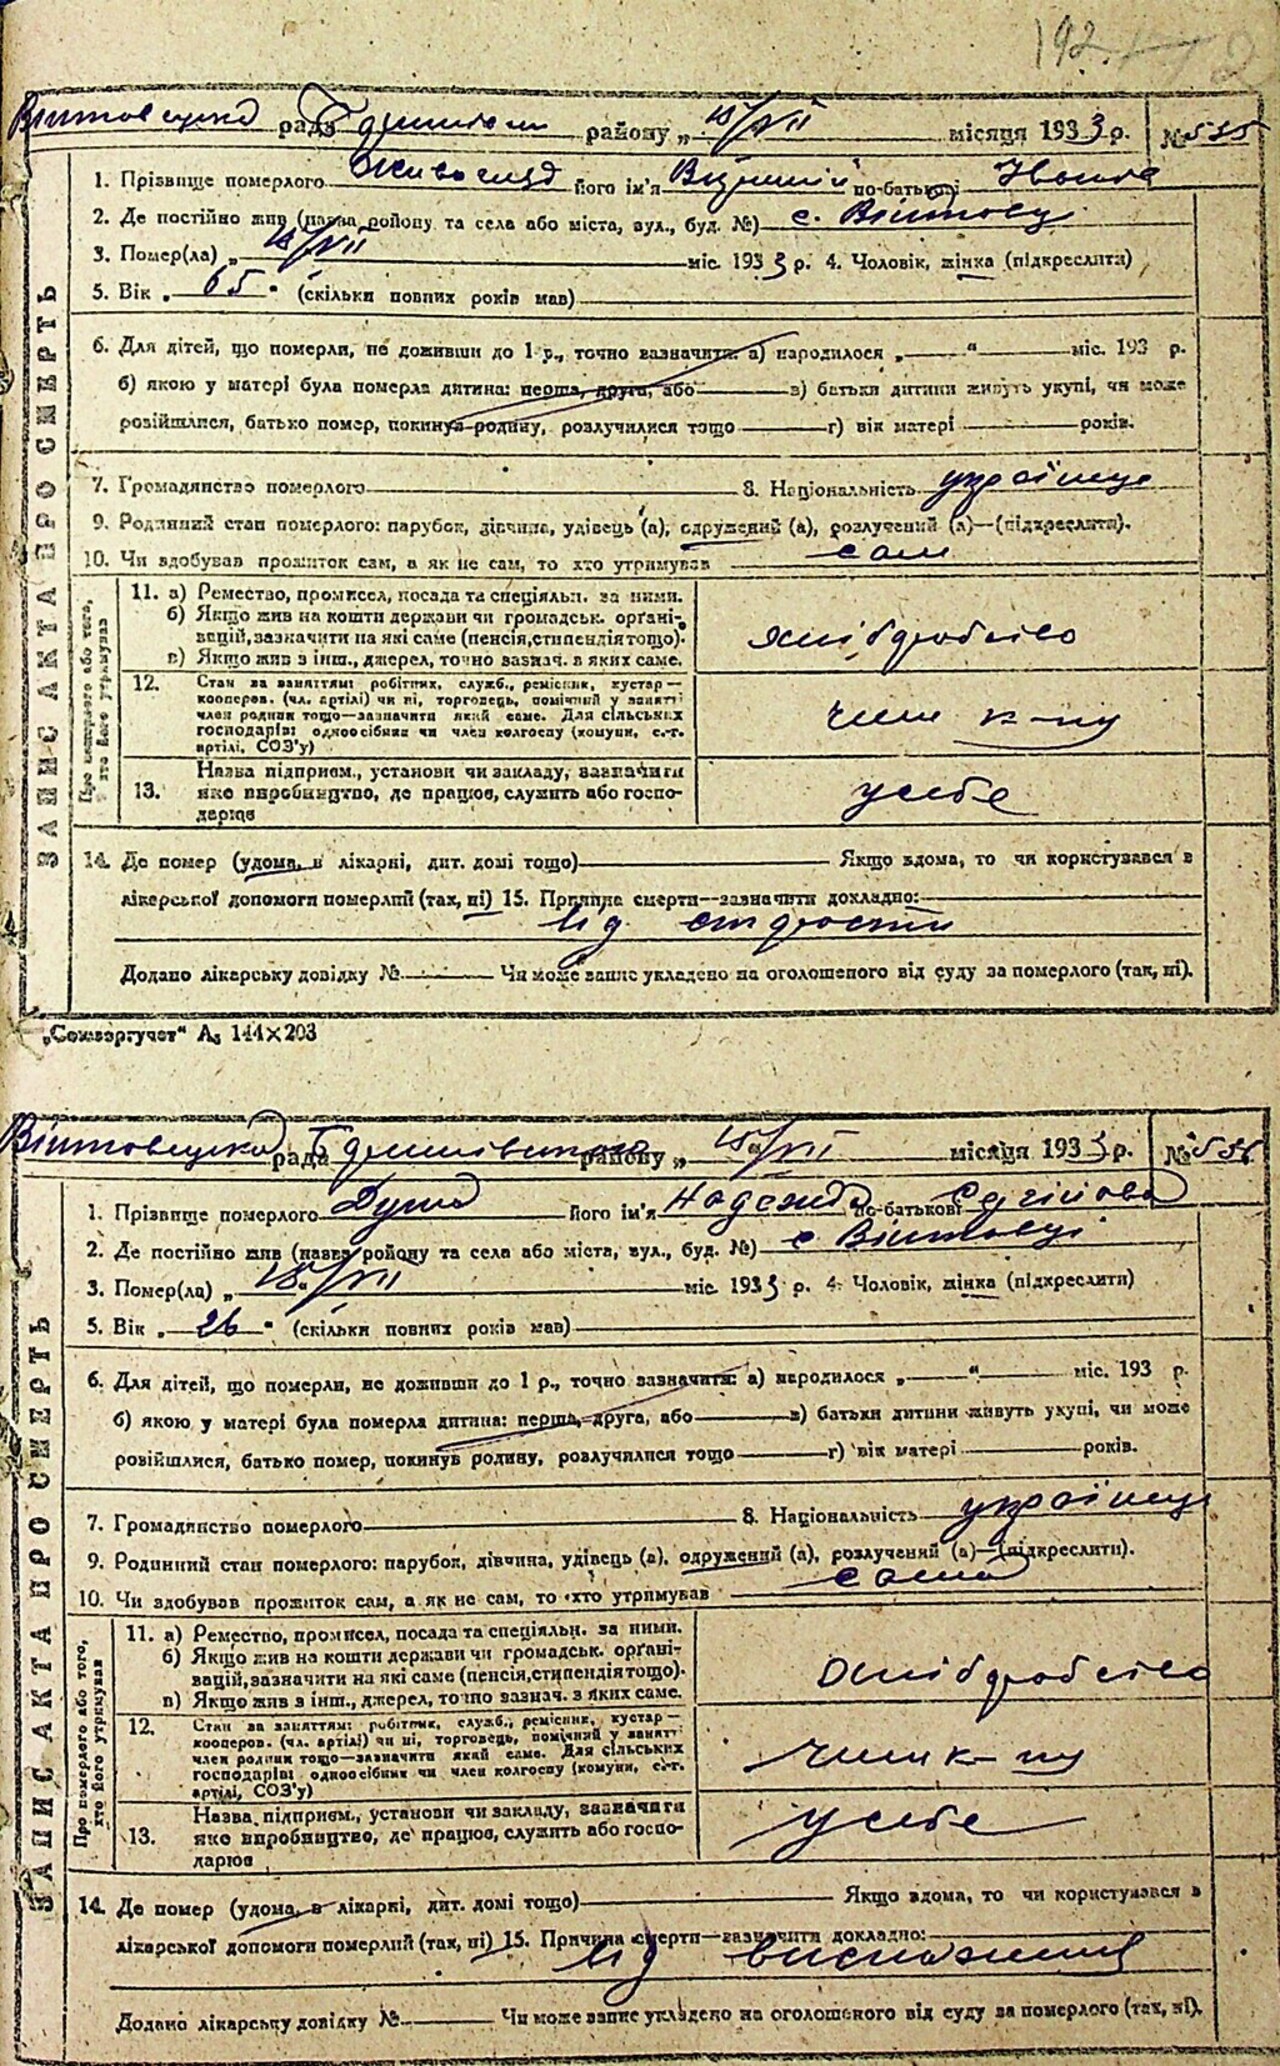 192
Війтовецька рада району „15/VII місяця 1933 р. № 535
1. Прізвище померлого його ім'я по-батькові
2. Де постійно жив (назва району та села або міста, вул., буд. №) с. Війтовці
3. Помер(ла) „ /VII міс. 1933 р. 4. Чоловік, жінка (підкреслити)
5. Вік „ 65 " (скільки повних років мав)
6. Для дітей, що померли, не доживши до 1 р., точно зазначити: а) народилося „ " міс. 193 р.
б) якою у матері була померла дитина: перша, друга, або в) батьки дитини живуть укупі, чи може
розійшлися, батько помер, покинув родину, розлучилися тощо г) вік матері років.
7. Громадянство померлого 8. Національність українця
9. Родинний стан померлого: парубок, дівчина, удівець (а), одружений (а), розлучений (а)—(підкреслити).
10. Чи здобував прожиток сам, а як не сам, то хто утримував сам
ЗАПИС АКТА ПРО СМЕРТЬ
Про померлого або того,
хто його утримував
11. а) Ремество, промисел, посада та спеціяльн. за ними.
б) Якщо жив на кошти держави чи громадськ. орґані-
зацій, зазначити на які саме (пенсія, стипендія тощо).
в) Якщо жив з інш., джерел, точно зазнач. з яких саме.
хліборобство
12. Стан за заняттям: робітник, служб., ремісник, кустар—
кооперов. (чл. артілі) чи ні, торговець, помічний у занятті
член родини тощо—зазначити який саме. Для сільських
господарів: одноосібник чи член колгоспу (комуни, с.-г.
артілі, СОЗ'у)
член к-пу
13. Назва підприєм., установи чи закладу, зазначити
яке виробництво, де працює, служить або госпо-
дарює
у себе
14. Де помер (удома, в лікарні, дит. домі тощо) Якщо вдома, то чи користувався в
лікарської допомоги померлий (так, ні) 15. Причина смерти—зазначити докладно:
від старости
Додано лікарську довідку № Чи може запис укладено на оголошеного від суду за померлого (так, ні).
А₅ 144×203
Війтовецька рада району „15/VII місяця 1933 р. № 536
1. Прізвище померлого його ім'я Надежда по-батькові
2. Де постійно жив (назва району та села або міста, вул., буд. №) с Війтовці
3. Помер(ла) „ 15/VII міс. 1933 р. 4. Чоловік, жінка (підкреслити)
5. Вік „ 26 " (скільки повних років мав)
6. Для дітей, що померли, не доживши до 1 р., точно зазначити: а) народилося „ " міс. 193 р.
б) якою у матері була померла дитина: перша, друга, або в) батьки дитини живуть укупі, чи може
розійшлися, батько помер, покинув родину, розлучилися тощо г) вік матері років.
7. Громадянство померлого 8. Національність українця
9. Родинний стан померлого: парубок, дівчина, удівець (а), одружений (а), розлучений (а)—(підкреслити).
10. Чи здобував прожиток сам, а як не сам, то хто утримував сама
ЗАПИС АКТА ПРО СМЕРТЬ
Про померлого або того,
хто його утримував
11. а) Ремество, промисел, посада та спеціяльн. за ними.
б) Якщо жив на кошти держави чи громадськ. орґані-
зацій, зазначити на які саме (пенсія, стипендія тощо).
в) Якщо жив з інш., джерел, точно зазнач. з яких саме.
хліборобство
12. Стан за заняттям: робітник, служб., ремісник, кустар—
кооперов. (чл. артілі) чи ні, торговець, помічний у занятті
член родини тощо—зазначити який саме. Для сільських
господарів: одноосібник чи член колгоспу (комуни, с.-г.
артілі, СОЗ'у)
член к-пу
13. Назва підприєм., установи чи закладу, зазначити
яке виробництво, де працює, служить або госпо-
дарює
у себе
14. Де помер (удома, в лікарні, дит. домі тощо) Якщо вдома, то чи користувався в
лікарської допомоги померлий (так, ні) 15. Причина смерти—зазначити докладно:
від виснаження
Додано лікарську довідку № Чи може запис укладено на оголошеного від суду за померлого (так, ні).